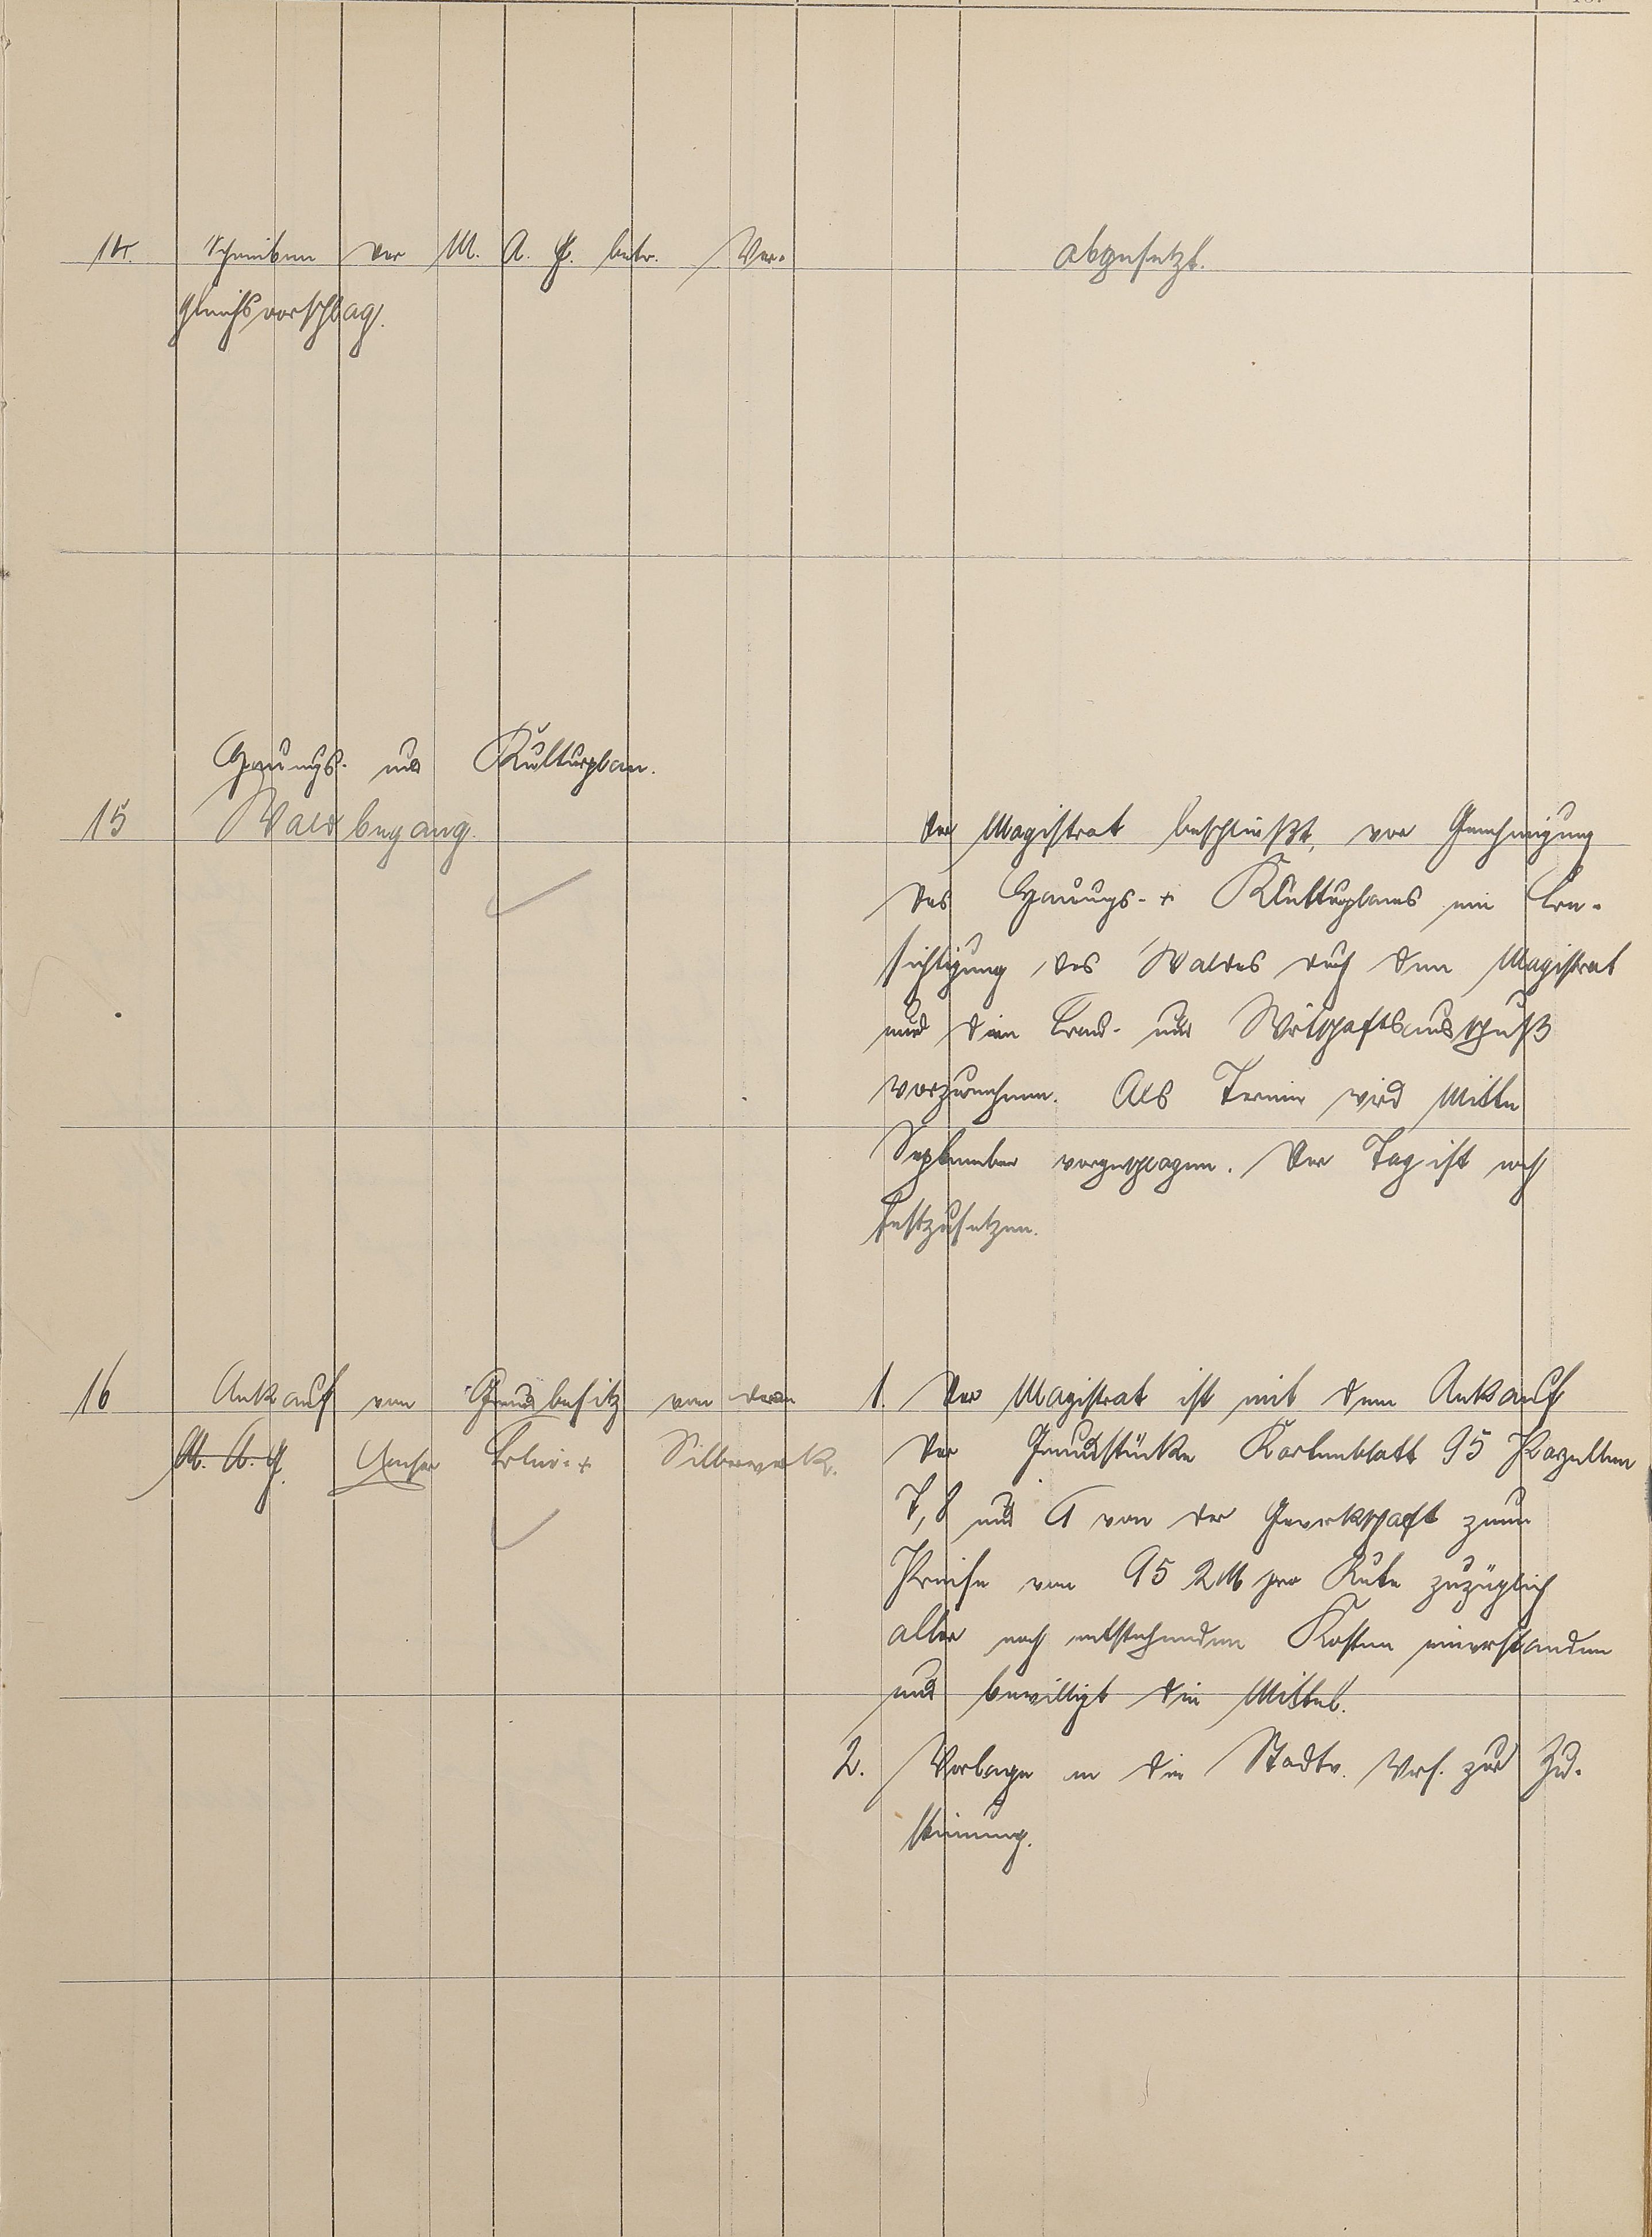 14. Schreiben der M. A. G. betr. Ver-
gleichsvorschlag.
abgesetzt.
Hauungs- und Kulturplan.
15 Waldbegang.
Der Magistrat beschließt, vor Genehmigung
des Hauungs- + Kulturplanes eine Be-
sichtigung des Waldes durch den Magistrat
und den Land- und Wirtschaftsausschuß
vorzunehmen. Als Termin wird Mitte
September vorgeschlagen. Der Tag ist noch
festzusetzen.
16 Ankauf von Grundbesitz von dem
M. A. G. Emser Blei- + Silberwerk.
1. Der Magistrat ist mit dem Ankauf
der Grundstücke Kartenblatt 95 Parzellen
7, 8 und 9 von der Gewerkschaft zum
Preise von 95 RM pro Rute zuzüglich
aller noch entstehenden Kosten einverstanden
und bewilligt die Mittel.
2. Vorlage an die Stadtv. Vers. zur Zu-
stimmung.